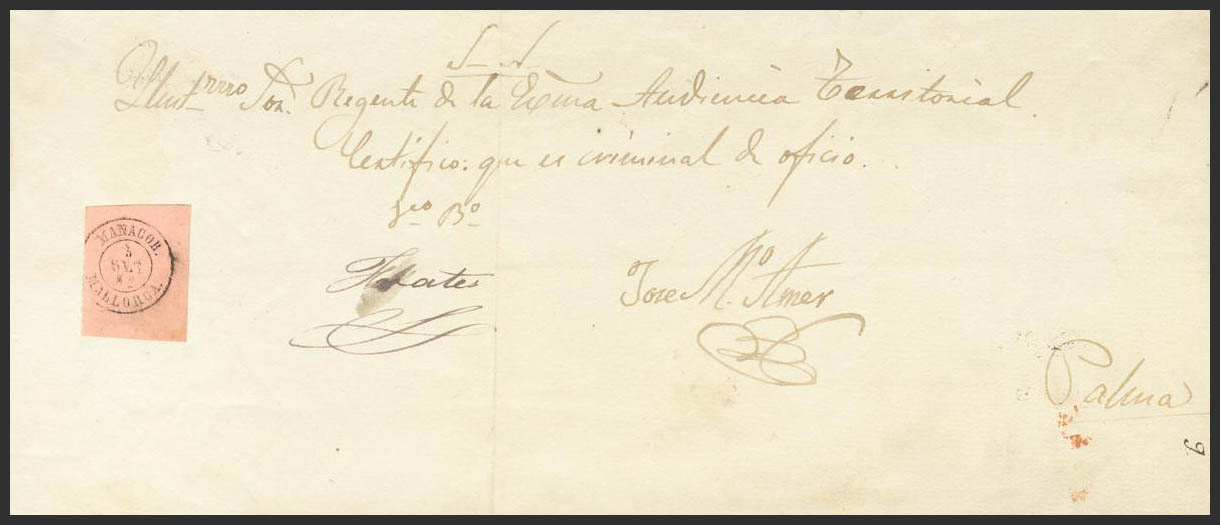 S. N.
Illmo. Sor. Regente de la Exma Audiencia Territorial.
Certifico: que es criminal de oficio.
Bº
MANACOR.
5
SET
MALLORCA.
Jose Mº Amer
Palma
9.